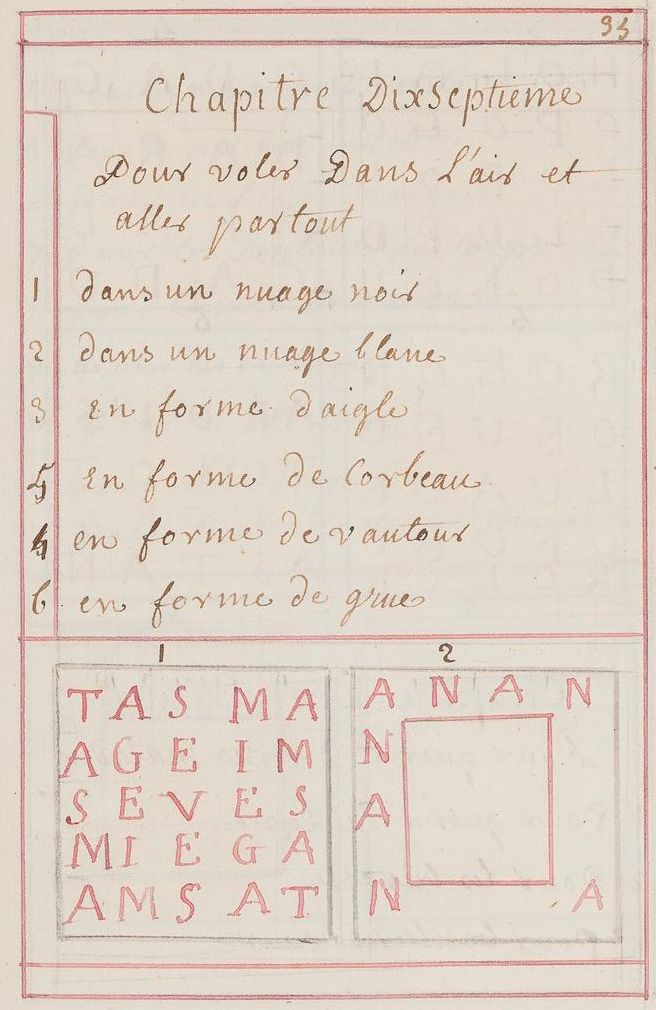 95
Chapitre Dixseptieme
Pour voler Dans L'air et
aller partout
1 dans un nuage noir
2 dans un nuage blanc
3 En forme daigle
5 En forme de Corbeau
4 en forme de vautour
6 en forme de grue
1 2
T A S M A
A G E I M
S E V E S
M I E G A
A M S A T
A N A N
N
A
N A